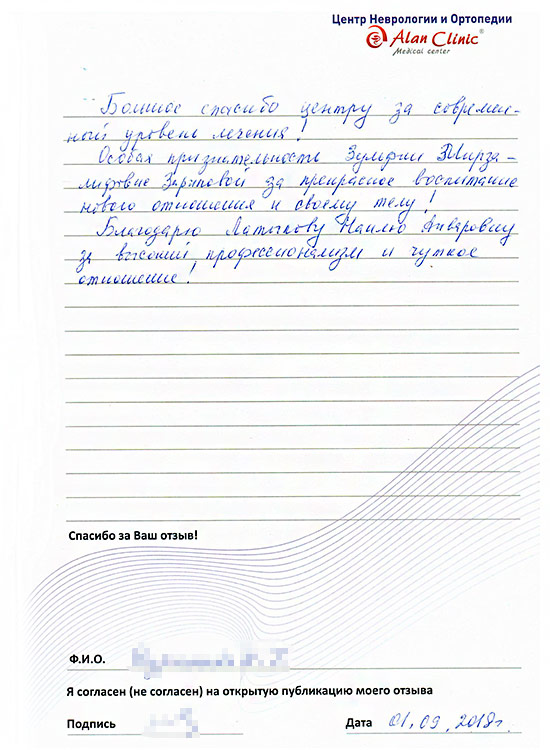 Центр Неврологии и Ортопедии
Alan Clinic®
Medical center
Большое спасибо центру за современ-
ный уровень лечения!
Особая признательность Зульфии Мирза-
Зариповой за прекрасное воспитание
нового отношения к своему телу!
Благодарю Латыпову Наилю Анваровну
за высокий профессионализм и чуткое
отношение!
Спасибо за Ваш отзыв!
Ф.И.О.
Я согласен (не согласен) на открытую публикацию моего отзыва
Подпись Дата 01.09.2018г.